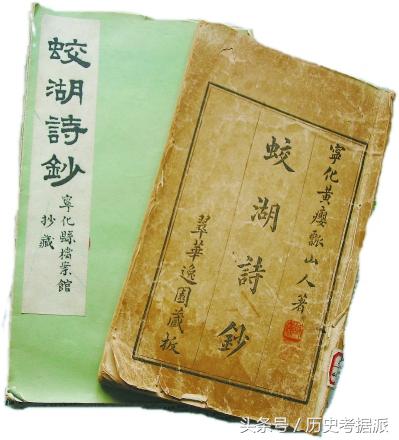 蛟湖詩鈔
寧化縣檔案館
抄藏
寧化黃癭瓢山人著
蛟湖詩鈔
翠華逸園藏板
头条号／历史考据派